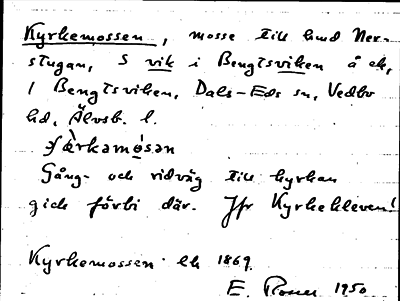 Kyrkemossen, mosse till hmd Ner-
stugan, S vik i Bengtsviken å ek,
I Bengtsviken, Dals-Eds sn, Vedbo
hd, Älvsb. l.
Gång- och ridväg till kyrkan
gick förbi där. Jfr Kyrkekleven!
Kyrkemossen ek 1869.
E. 1950